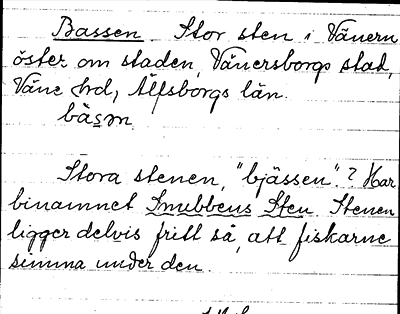 Bassen. Stor sten i Vänern
öster om staden, Vänersborgs stad,
Väne hd, Älfsborgs län.
bàsm.
Stora stenen, "bjässen"? Har
binamnet Snubbens Sten. Stenen
ligger delvis fritt så, att fiskarne
simma under den.